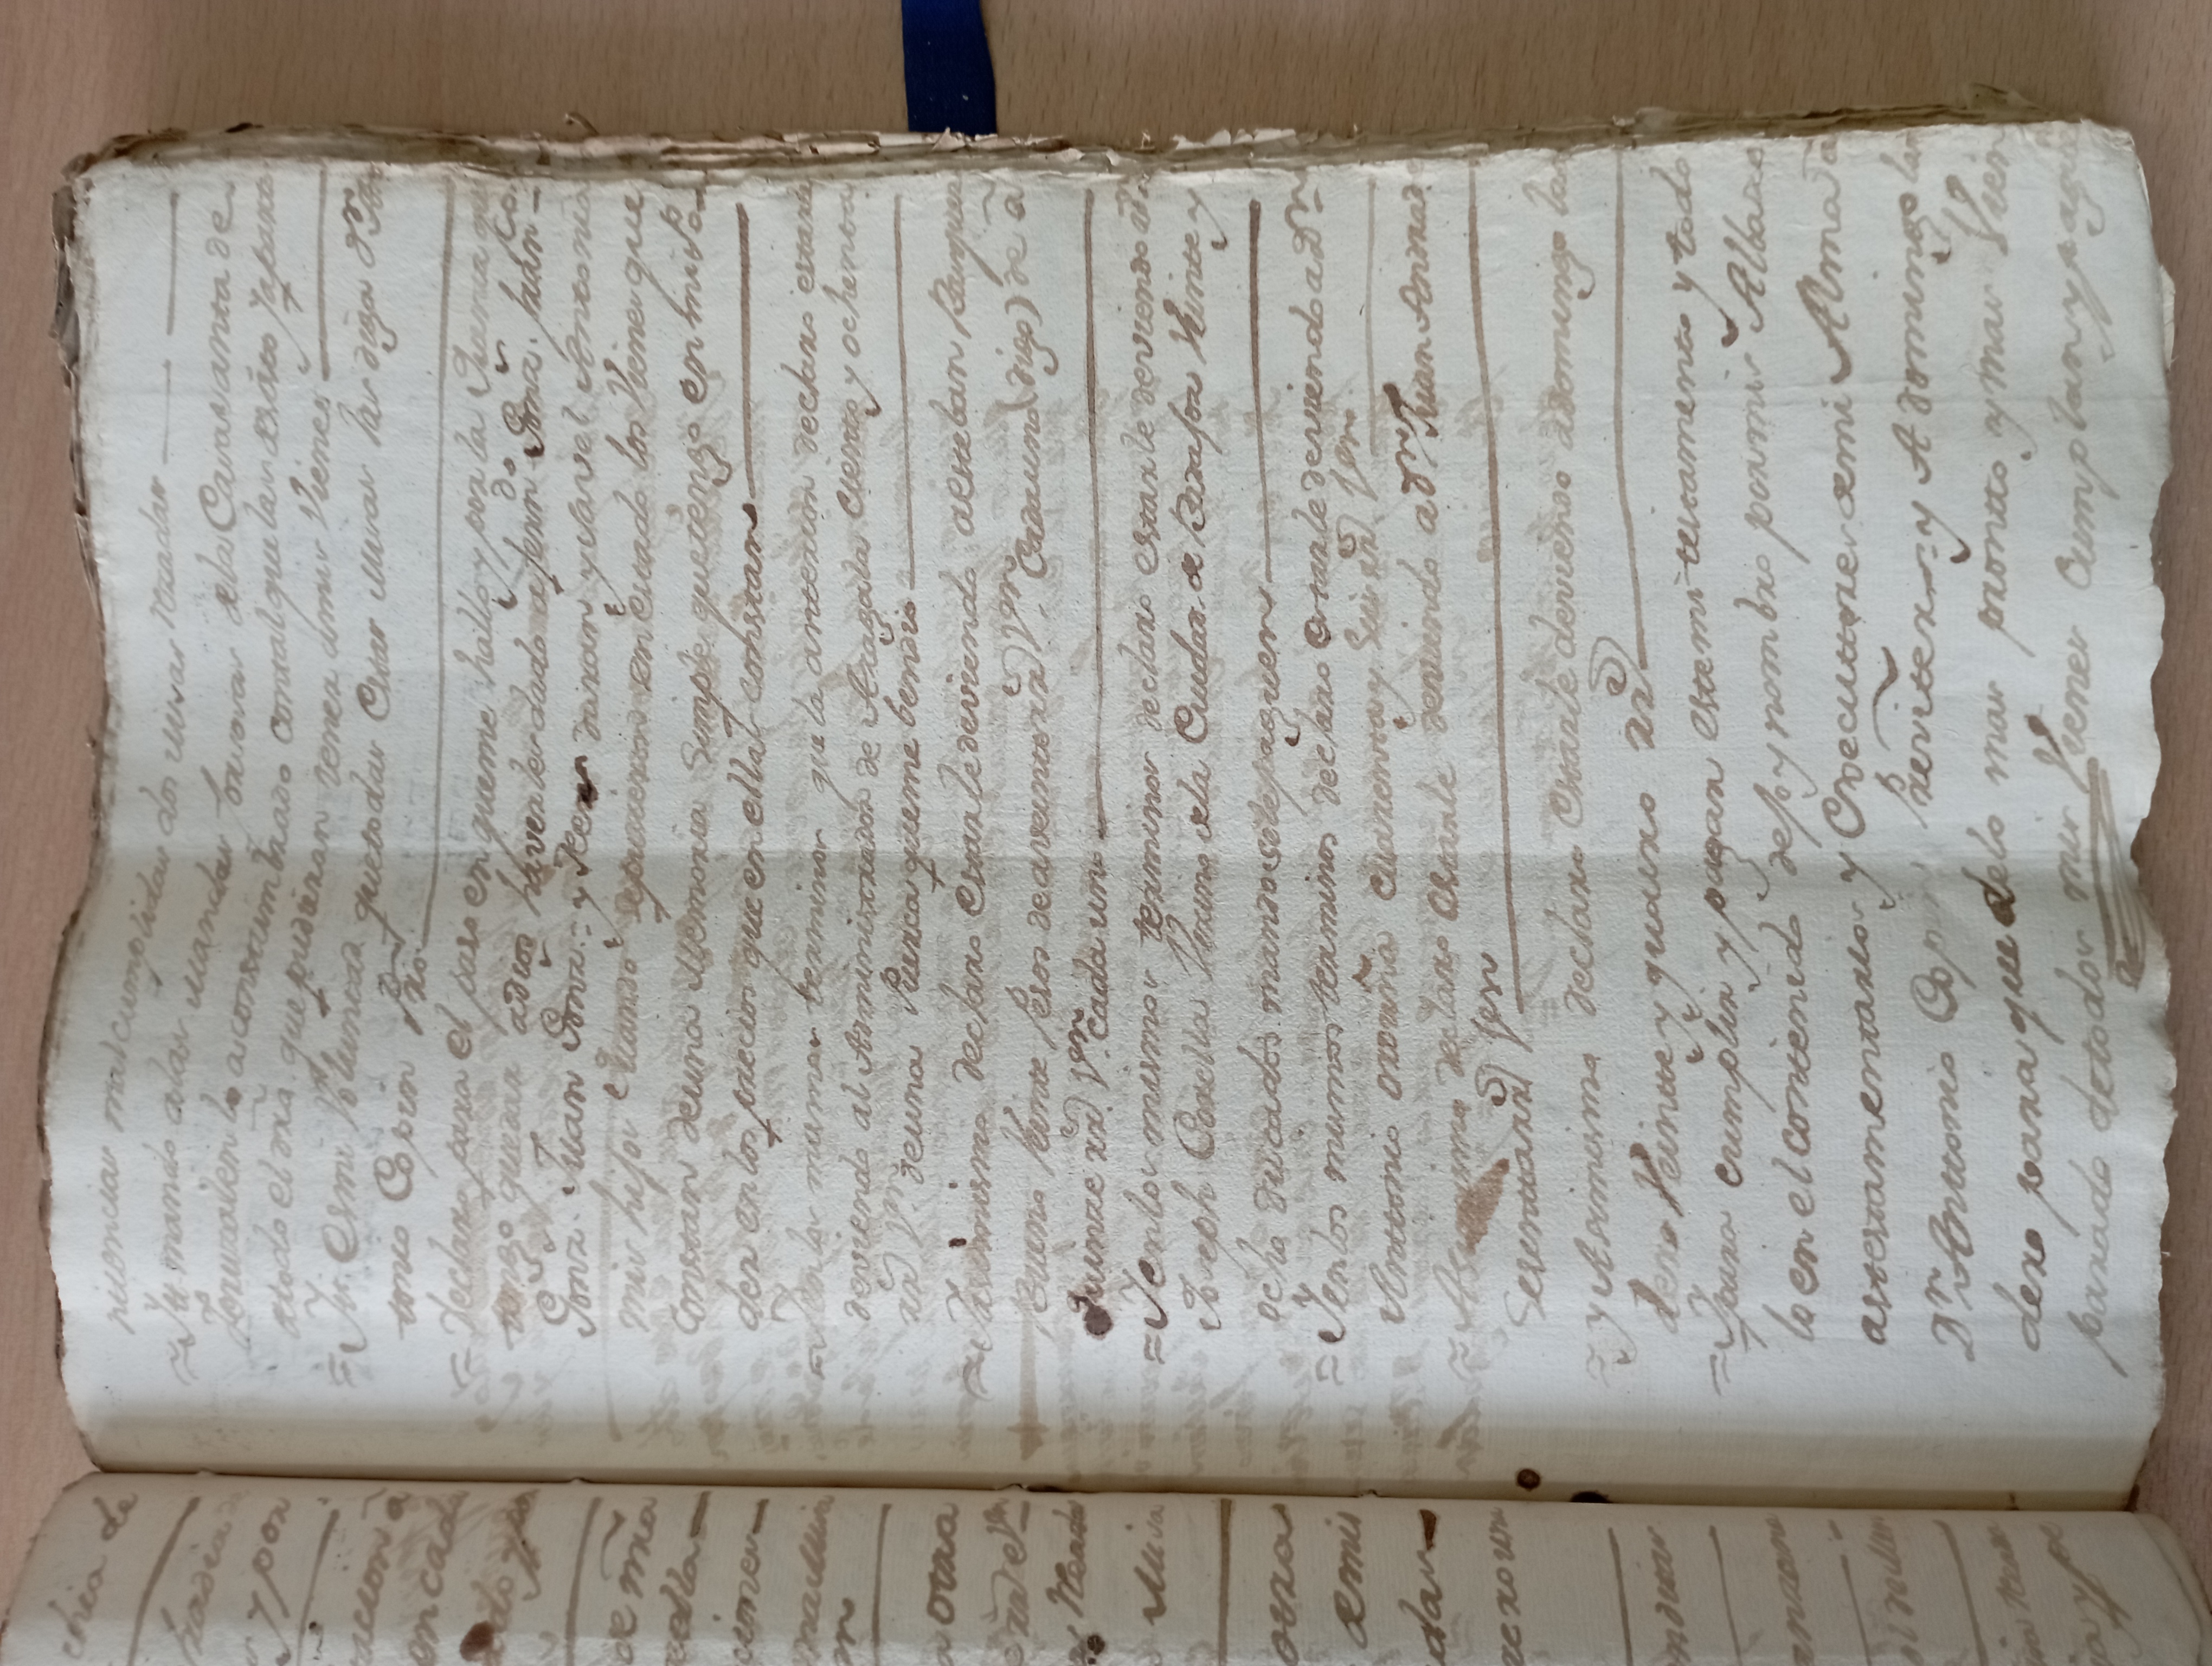 nitencias mal cumplidas dos misas Rezadas
= It mando a las mandas forsosas de la Casa santa de
Jeruzalen lo acostumbrado con tal que las desisto y aparto
a todo el dro. que pudieran tener a mis Vienes
= It. es mi Voluntad que todas estas misas las diga Dn. An
tonio Copin Pro.
= Declaro para el paso en que me hallo y por la quenta que
tengo que dar a Dios haverles dado a ferndo. Gonz. fran-co.
Gonz. Juan Gonz. = y duran y Savel Antonia
mis hijos quando se pusieron en estado los Vienes que
constan de una Memoria Simple que tengo en mi Po-
der en los precios que en ella constan
= Y en los mismos terminos que la anterior declaro estarle
deviendo al Administrador de Aragala ciento y ochenta
rrs. Von. de una Puerca que me bendio
= Y asimismo declaro estarle deviendo a esteban Banquez
Bueno Veinte Pesos de a veinte rrs Von. Cada uno (digo) de â
quinze rrs. Von. cada uno
= Y en los mismos terminos declaro estarle deviendo a Dn.
Joseph Corella Vezino de la Ciudad de Badajoz Veinte y
ocho ducados mando se le paguen
= Y en los mismos terminos declaro estarle deviendo a Dn.
Anttonio orduña cuarenta y Seis rrs Von.
= Asimismo declaro estarle deviendo a Dn. Juan Andrade
Sesentta rrs Von
= y Asimismo declaro estarle deviendo a domingo lan
dero Veintte y quatro rrs
= Y para cumplir y pagar este mi testamento y todo
lo en el contenido dejo y nombro por mis Albaze
as testamentarios y Executtores de mi Alma â
Dn. Anttonio Copin Previter = y A domingo lan
dero para que de lo mas prontto y mas Vien
parado de todos mis Vienes cumplan y paguen